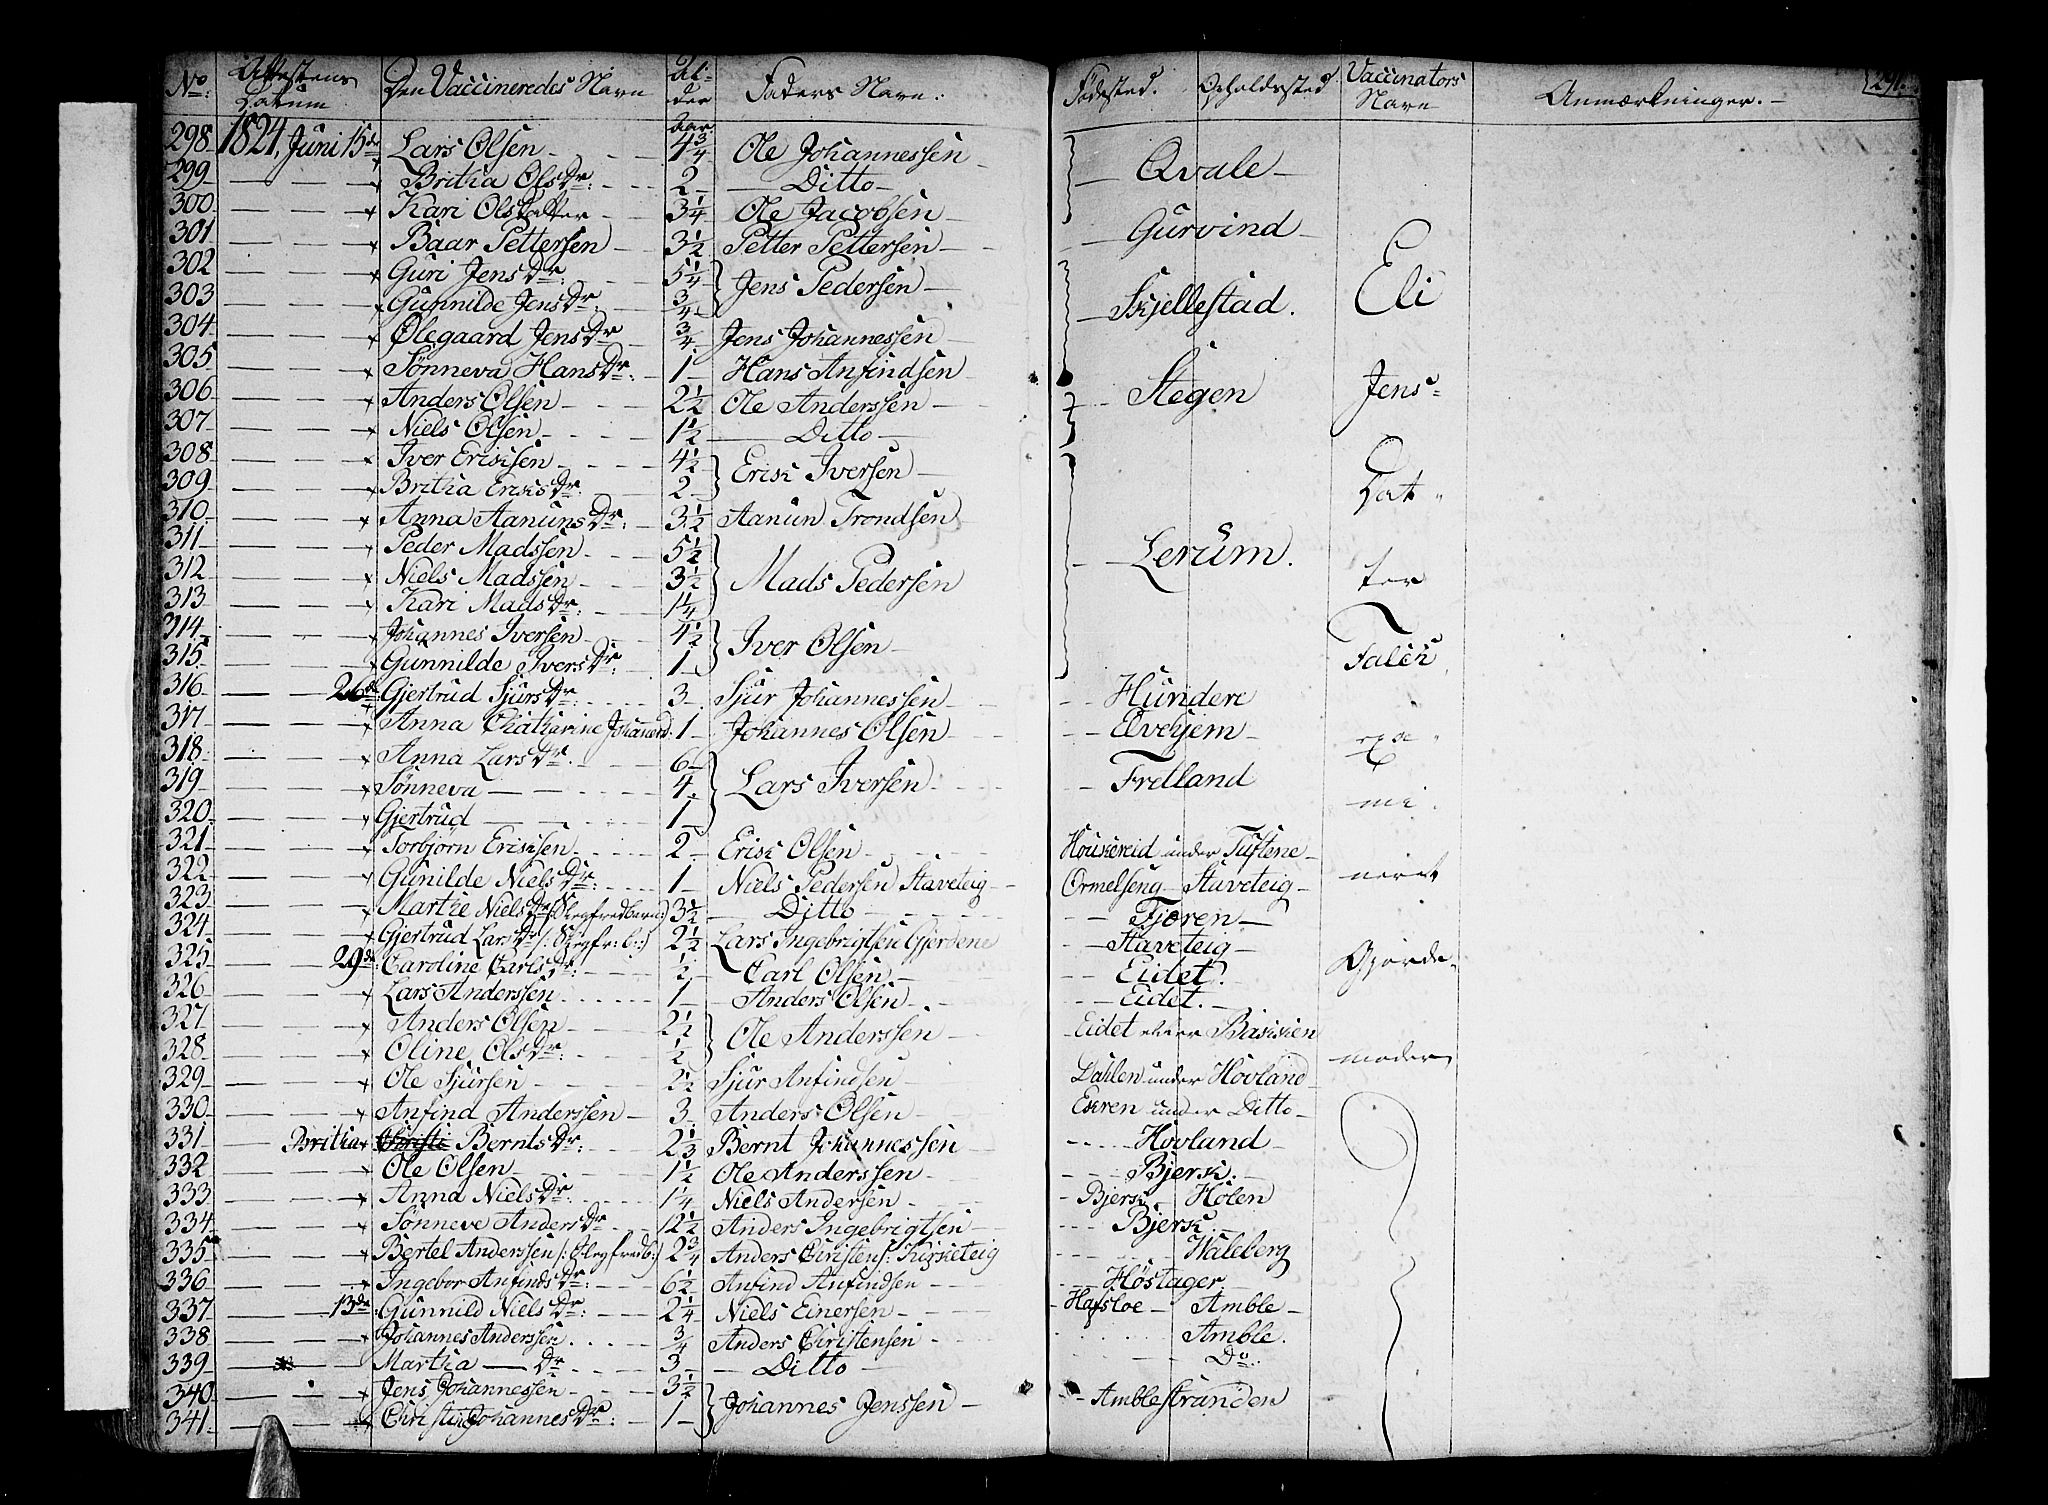 No: Attestens Datum Den Vaccineredes Navn Alder Faders Navn: Födested. Opholdssted Vaccinators Navn Anmærkninger.- 291.
Aar
298 1824, Juni 15de Lars Olsen 4 3/4 Ole Johannessen Qvale
299 Britha OlsDr: 2 Ditto
300 Kari Olsdatter 3 1/4 Ole Jacobsen
301 Baar Pettersen 3 1/2 Petter Pettersen Gurvind
302 Guri JensDr: 5 1/4 Jens Pedersen
303 Gunnilde JensDr 3/4 Skjellestad. Eli
304 Olegaard JensDr 3/4 Jens Johannessen
305 Sönneva HansDr: 1 Hans Anfindsen
306 Anders Olsen 2 1/2 Ole Anderssen Stegen Jens=
307 Niels Olsen 1 1/2 Ditto
308 Iver Ericksen 4 1/2 Erick Iversen
309 Britha EricksDr: 2 Dat
310 Anna AanunsDr: 3 1/2 Aanun Trondsen
311 Peder Madssen 5 1/2 Mads Pedersen Lerum.
312 Niels Madssen 3 1/2 ter
313 Kari MadsDr: 1 1/4
314 Johannes Iversen 4 1/2 Iver Olsen
315 Gunnilde IversDr: 1 Falck
316 26de Gjertrud SjursDr: 3 Sjur Johannessen Hundere
317 Anna Chatharine Johanesd: 1 Johannes Olsen Elvehjem exa
318 Anna LarsDr. 6 Lars Iversen
319 Sönneva 4 Fretland
320 Gjertrud 1 mi
321 Torbjörn Ericksen 2 Erick Olsen under Tuftene
322 Gunilde NielsDr: 1 Niels Pedersen Staveteig Ormelseng Staveteig neret
323 Marthe NielsDr (Slegfredbarn:) 3 1/2 Ditto Fjæren
324 Gjertrud LarsDr /: Slegfr: b::) 2 1/2 Lars Ingebrigtsen Gjerdene Staveteig
325 29de: Caroline CarlsDr: 1/2 Carl Olsen Eidet. Gjorde
326 Lars Anderssen 1 Anders Olsen Eidet.
327 Anders Olsen 2 1/2 Ole Anderssen Eidet eller Backken
328 Oline OlsDr: 1/2 moder
329 Ole Sjursen 2 1/2 Sjur Anfindsen Dahlen under Hovland
330 Anfind Anderssen 3 Anders Olsen Ekren under Ditto
331 Britha BerntsDr: 2 1/3 Bernt Johannessen Hovland
332 Ole Olsen 1 1/2 Ole Anderssen Bjerk.
333 Anna NielsDr: 1 1/4 Niels Andersen Bjerk Holen
334 Sönneve AndersDr 12 1/2 Anders Ingebrigtsen Bjerk.
335 Bertel Anderssen /: Slegfredb:) 2 3/4 Anders Christens: Kirketeig Haleberg
336 Ingebor AnfindsDr: 6 1/2 Anfind Anfindsen Höstager
337 13de: Gunnild NielsDr: 2 1/4 Niels Einersen Hafsloe Amble
338 Johannes Anderssen 3/4 Anders Christensen Amble.
339 Martha Dr 3 Ditto Do:
340 Jens Johannessen 3 1/2 Johannes Jenssen Amblestranden
341 JohannesDr: 1